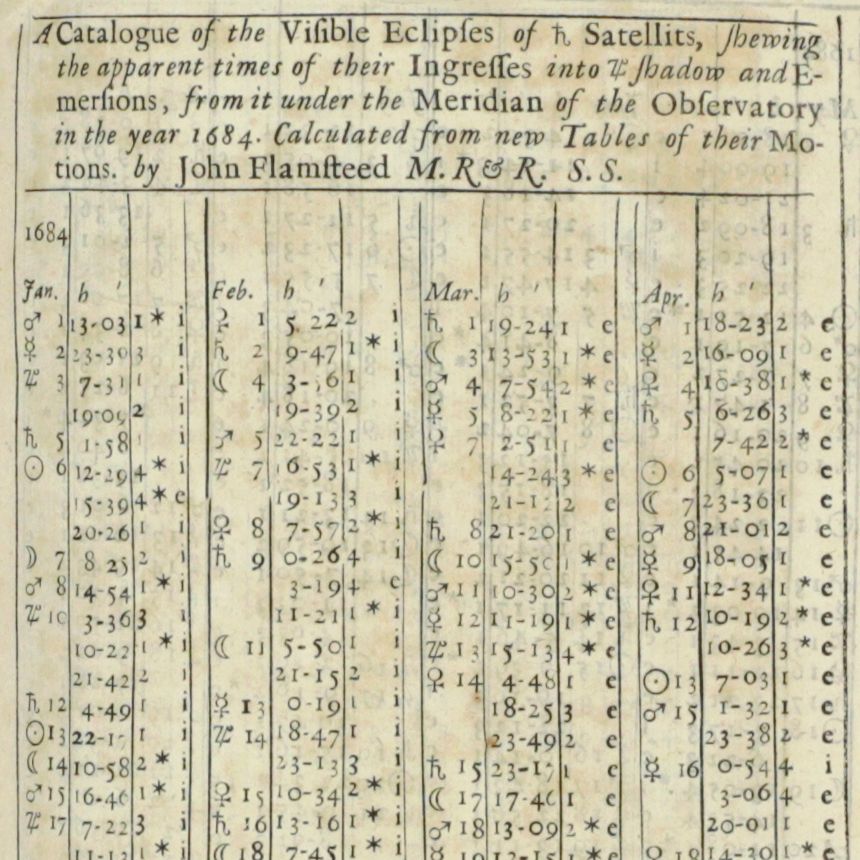 A Catalogue of the Viſible Eclipſes of ♄ Satellits, ſhewing
the apparent times of their Ingreſſes into ♃ ſhadow and E-
merſions, from it under the Meridian of the Obſervatory
in the year 1684. Calculated from new Tables of their Mo-
tions. by John Flamſteed M. R & R. S. S.
1684
Jan. h '
♂ 1 13-03 1 * i
☿ 2 23-30 3 i
♃ 3 7-31 1 i
19-09 2 i
♄ 5 1-58 1 i
☉ 6 12-29 4 * i
15-39 4 * e
20-26 1 i
☽ 7 8 25 2 i
♂ 8 14-54 1 * i
♃ 10 3-36 3 i
10-22 1 * i
21-42 2 i
♄ 12 4-49 1 i
☉ 13 1 i
☾ 14 10-58 2 * i
♂ 15 16-46 1 * i
♃ 17 7-22 3 i
1 * i
Feb. h '
♀ 1 5. 22 2 i
♄ 2 9-47 1 * i
☾ 4 1 i
19-39 2 i
♂ 5 22-22 1 i
♃ 7 16-53 1 * i
19-13 3 i
♀ 8 7-57 2 * i
♄ 9 0-26 4 i
3-19 4 e
11-21 1 * i
☾ 11 5-50 1 i
21-15 2 i
☿ 13 0-19 1 i
♃ 14 18-47 1 i
23-13 3 i
♀ 15 10-34 2 * i
♄ 16 13-16 1 * i
☾ 18 7-45 1 * i
Mar. h '
♄ 1 19-24 1 e
☾ 3 13-53 1 * e
♂ 4 7-54 2 * e
☿ 5 8-22 1 * e
♀ 7 2-51 1 e
14-24 3 * e
2 e
♄ 8 21-20 1 e
☾ 10 15-50 1 * e
♂ 11 10-30 2 * e
☿ 12 11-19 1 * e
♃ 13 15-13 4 * e
♀ 14 4-48 1 e
18-25 3 e
23-49 2 e
♄ 15 23-17 1 e
☾ 17 17-46 1 e
♂ 18 13-09 2 * e
☿ 19 12-15 1 * e
Apr. h '
♂ 1 18-23 2 e
☿ 2 16-09 1 e
♀ 4 10-38 1 * e
♄ 5 6-26 3 e
7-42 2 * e
☉ 6 5-07 1 e
☾ 7 23-36 1 e
♂ 8 21-01 2 e
☿ 9 18-05 1 e
♀ 11 12-34 1 * e
♄ 12 10-19 2 * e
10-26 3 * e
☉ 13 7-03 1 e
♂ 15 1-32 1 e
23-38 2 e
☿ 16 0-54 4 i
3-06 4 e
20-01 1 e
♀ 18 14-30 * e